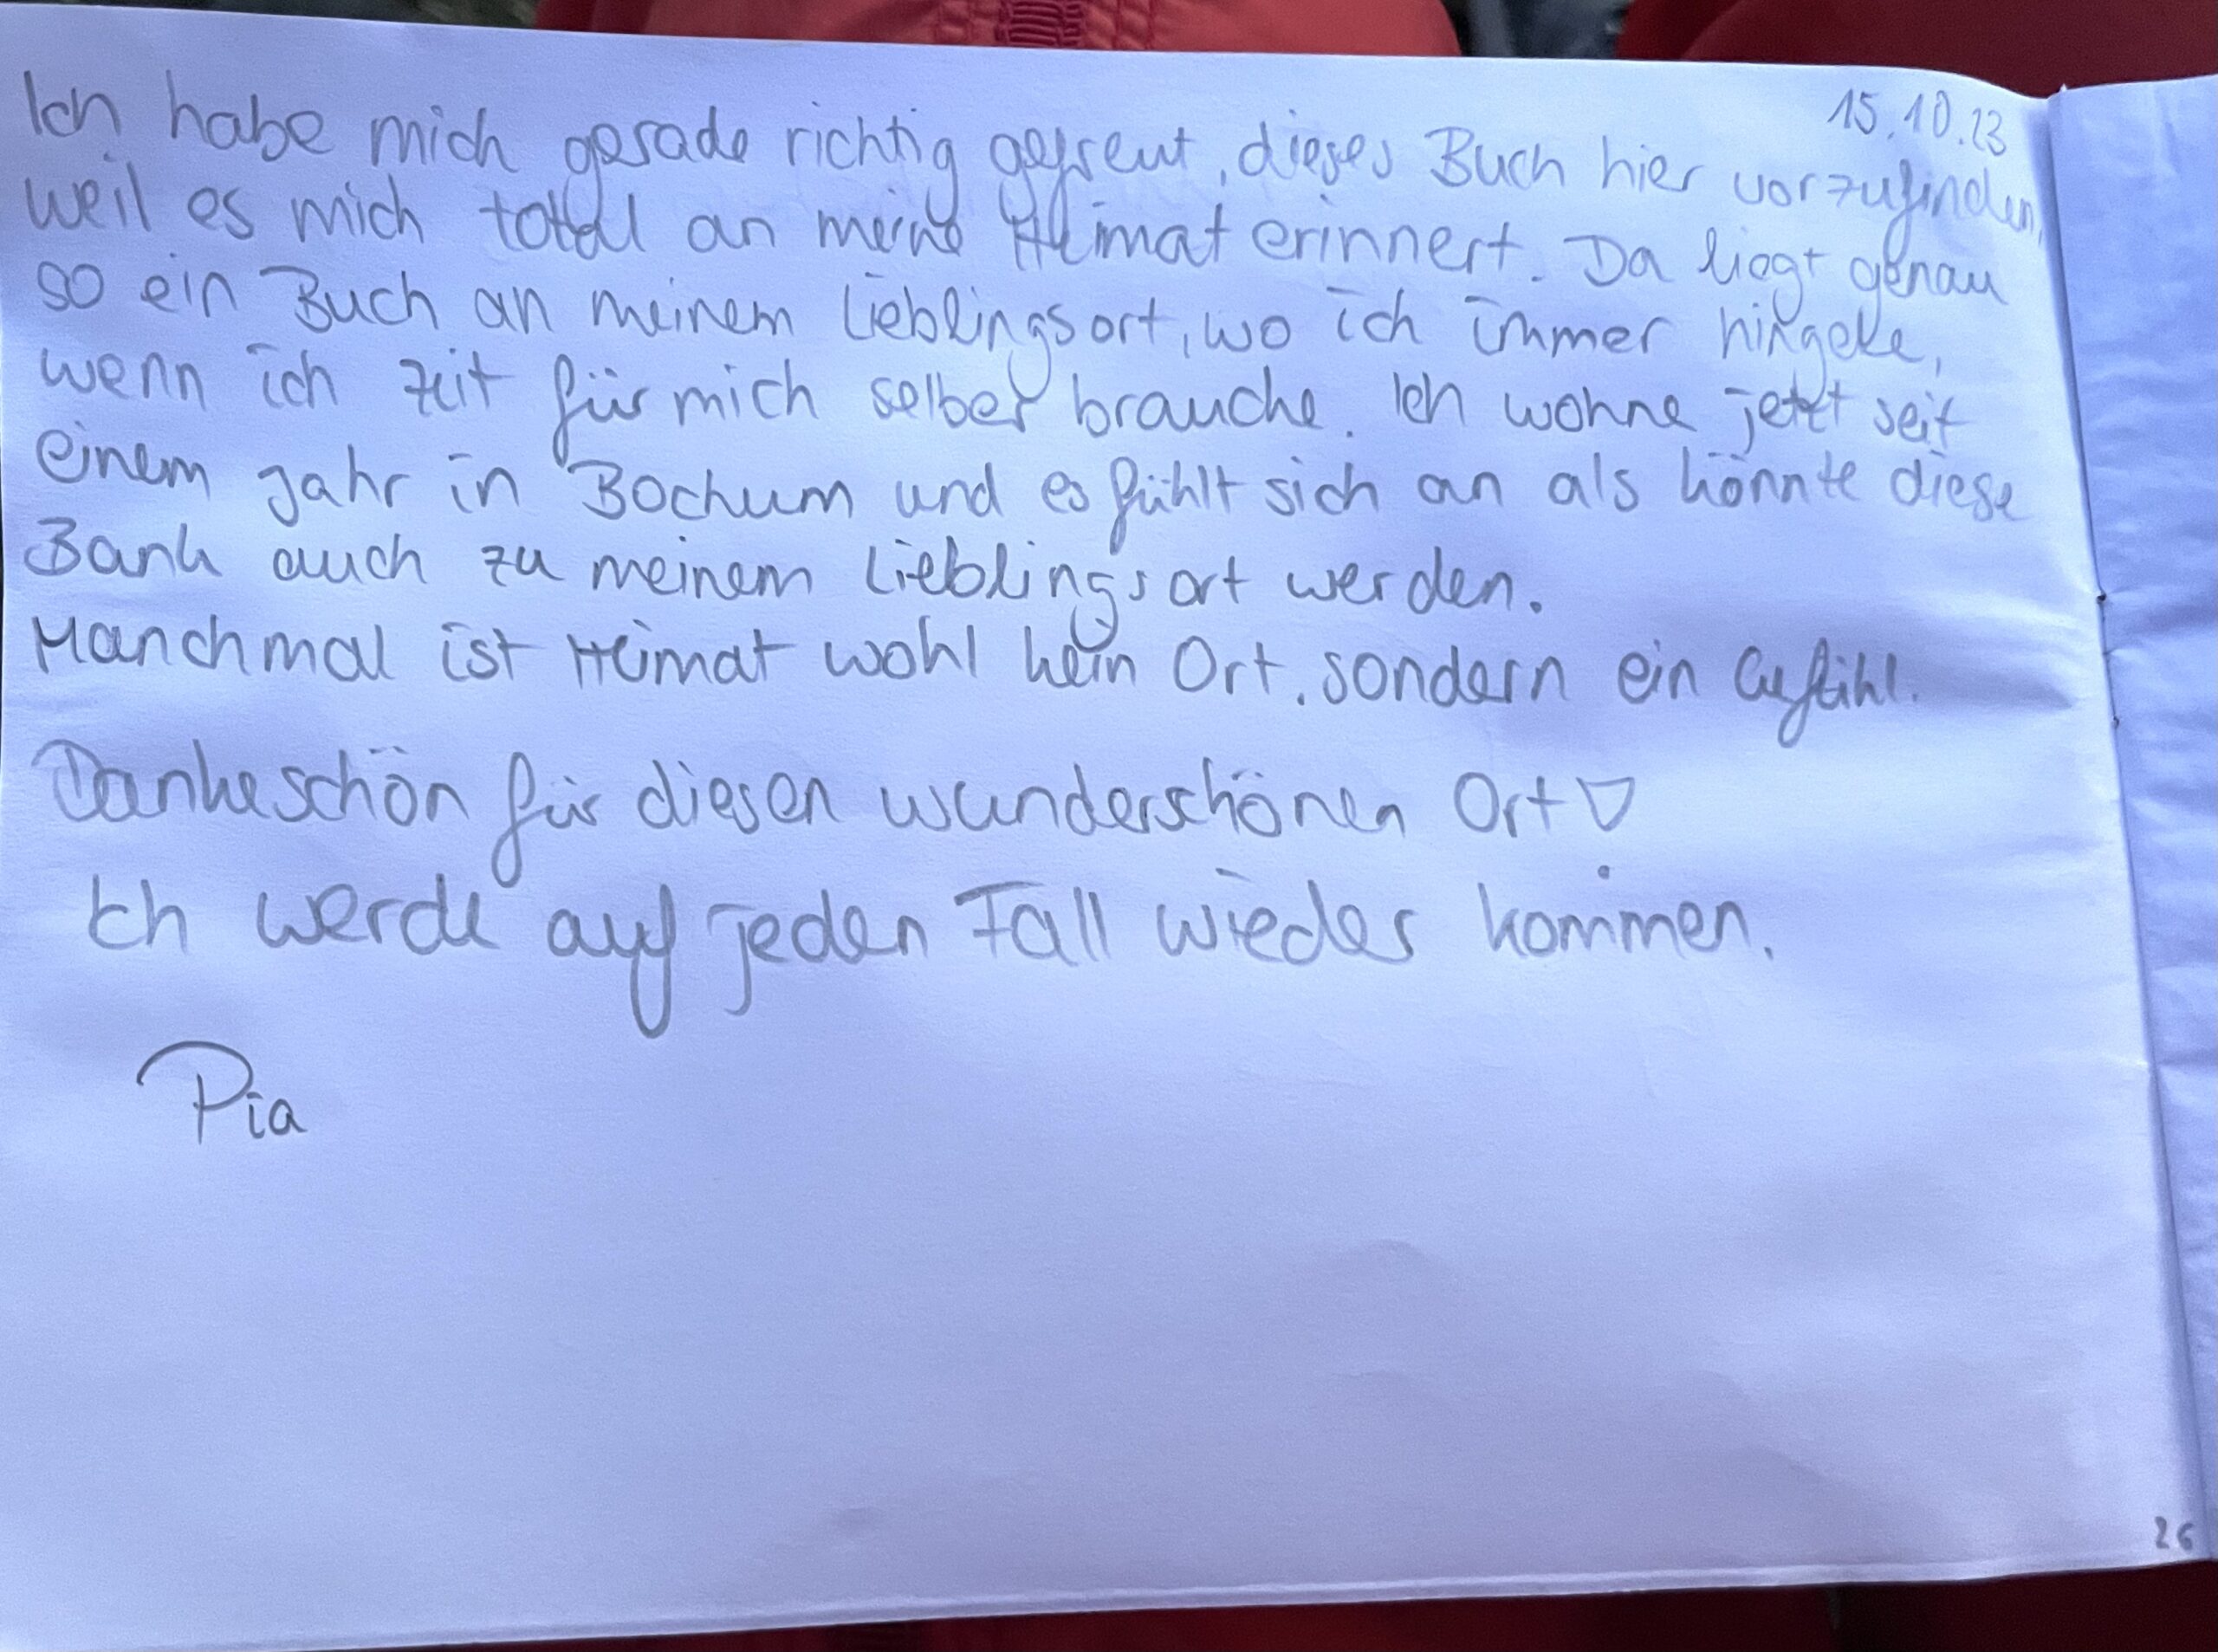 15.10.23
Ich habe mich gerade richtig gefreut, dieses Buch hier vorzufinden,
weil es mich total an meine Heimat erinnert. Da liegt genau
so ein Buch an meinem Lieblingsort, wo ich immer hingehe,
wenn ich Zeit für mich selber brauche. Ich wohne jetzt seit
einem Jahr in Bochum und es fühlt sich an als könnte diese
Bank auch zu meinem Lieblingsort werden.
Manchmal ist Heimat wohl kein Ort, sondern ein Gefühl.
Dankeschön für diesen wunderschönen Ort ♡
Ich werde auf jeden Fall wieder kommen.
Pia
26